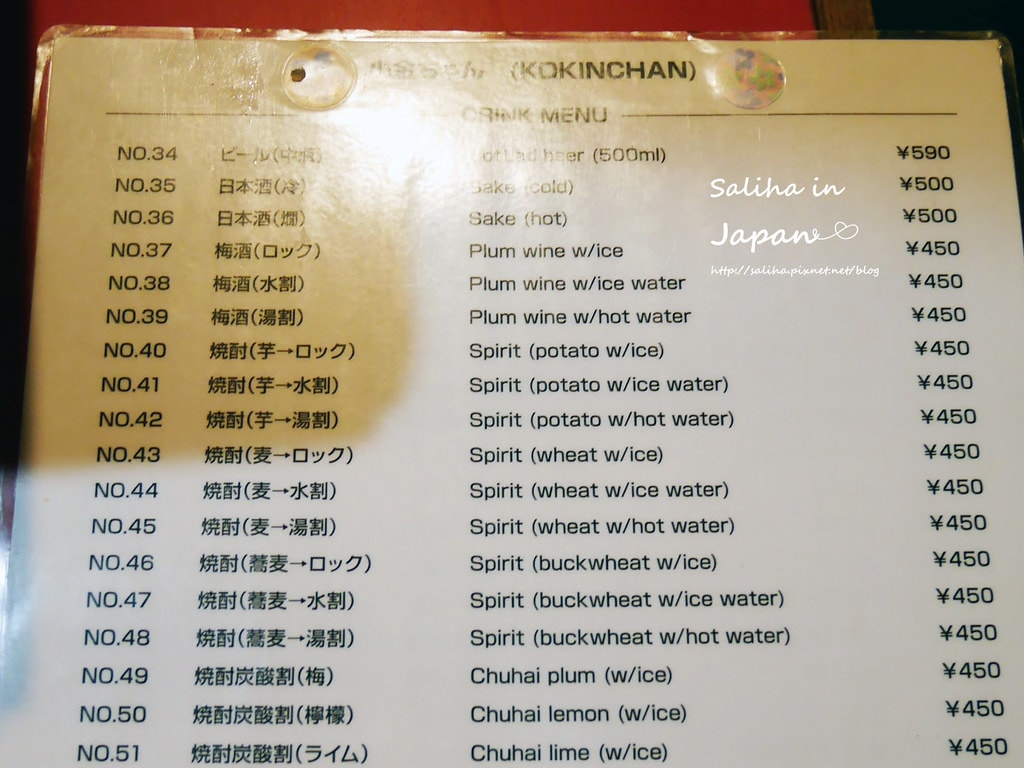 小金ちゃん (KOKINCHAN)
DRINK MENU
NO.34 ビール(中瓶) beer (500ml) ¥590
NO.35 日本酒(冷) Sake (cold) ¥500
NO.36 日本酒(燗) Sake (hot) ¥500
NO.37 梅酒(ロック) Plum wine w/ice ¥450
NO.38 梅酒(水割) Plum wine w/ice water ¥450
NO.39 梅酒(湯割) Plum wine w/hot water ¥450
NO.40 焼酎(芋→ロック) Spirit (potato w/ice) ¥450
NO.41 焼酎(芋→水割) Spirit (potato w/ice water) ¥450
NO.42 焼酎(芋→湯割) Spirit (potato w/hot water) ¥450
NO.43 焼酎(麦→ロック) Spirit (wheat w/ice) ¥450
NO.44 焼酎(麦→水割) Spirit (wheat w/ice water) ¥450
NO.45 焼酎(麦→湯割) Spirit (wheat w/hot water) ¥450
NO.46 焼酎(蕎麦→ロック) Spirit (buckwheat w/ice) ¥450
NO.47 焼酎(蕎麦→水割) Spirit (buckwheat w/ice water) ¥450
NO.48 焼酎(蕎麦→湯割) Spirit (buckwheat w/hot water) ¥450
NO.49 焼酎炭酸割(梅) Chuhai plum (w/ice) ¥450
NO.50 焼酎炭酸割(檸檬) Chuhai lemon (w/ice) ¥450
NO.51 焼酎炭酸割(ライム) Chuhai lime (w/ice) ¥450
Saliha in
Japan
http://saliha.pixnet.net/blog